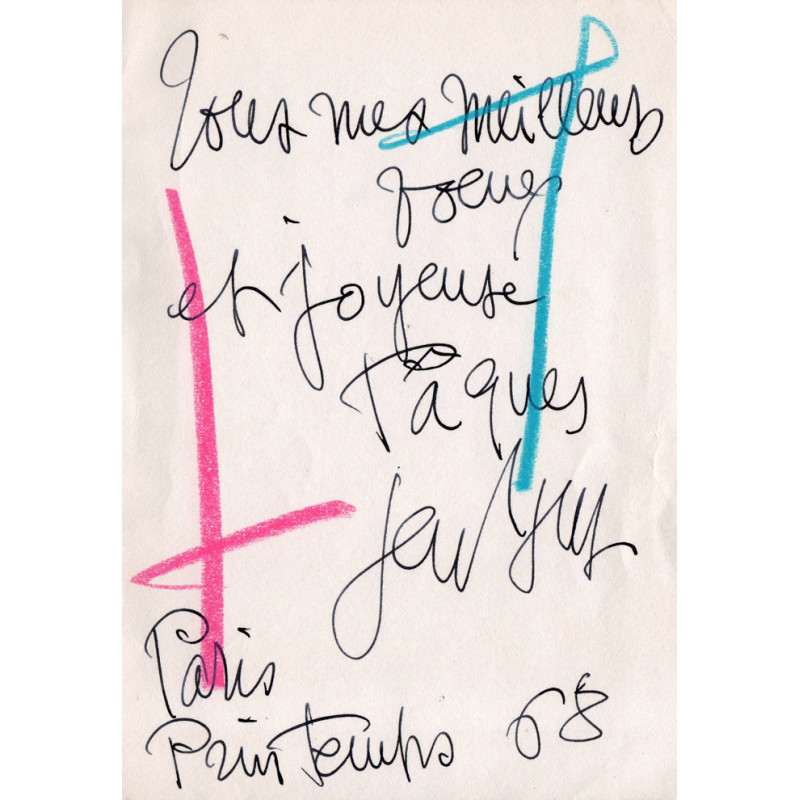 Tous mes meilleurs
voeux
et joyeuse
Pâques
Paris
Printemps 68